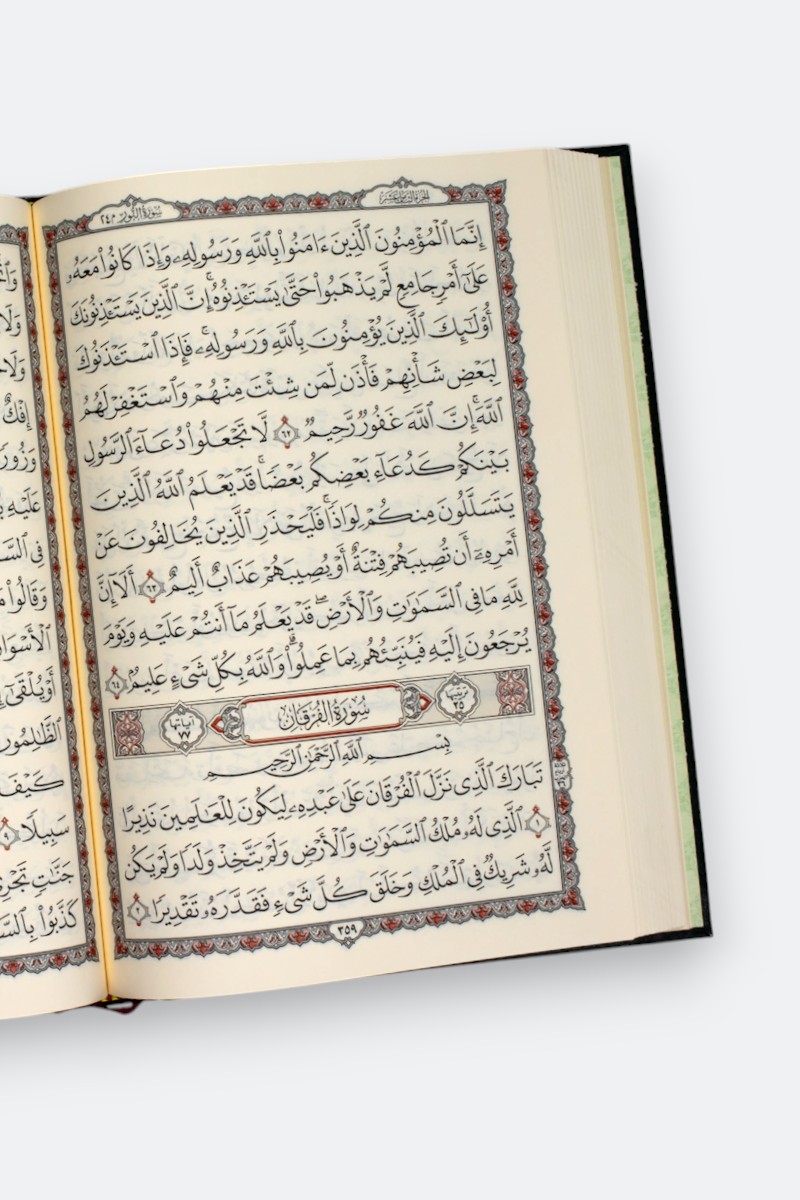 الجزء الثامن عشر
سورة النور ٢٤
إِنَّمَا ٱلْمُؤْمِنُونَ ٱلَّذِينَ ءَامَنُوا۟ بِٱللَّهِ وَرَسُولِهِۦ وَإِذَا كَانُوا۟ مَعَهُۥ
عَلَىٰٓ أَمْرٍ جَامِعٍ لَّمْ يَذْهَبُوا۟ حَتَّىٰ يَسْتَـْٔذِنُوهُ ۚ إِنَّ ٱلَّذِينَ يَسْتَـْٔذِنُونَكَ
أُو۟لَـٰٓئِكَ ٱلَّذِينَ يُؤْمِنُونَ بِٱللَّهِ وَرَسُولِهِۦ ۚ فَإِذَا ٱسْتَـْٔذَنُوكَ
لِبَعْضِ شَأْنِهِمْ فَأْذَن لِّمَن شِئْتَ مِنْهُمْ وَٱسْتَغْفِرْ لَهُمُ
ٱللَّهَ ۚ إِنَّ ٱللَّهَ غَفُورٌ رَّحِيمٌ ٦٢ لَّا تَجْعَلُوا۟ دُعَآءَ ٱلرَّسُولِ
بَيْنَكُمْ كَدُعَآءِ بَعْضِكُم بَعْضًا ۚ قَدْ يَعْلَمُ ٱللَّهُ ٱلَّذِينَ
يَتَسَلَّلُونَ مِنكُمْ لِوَاذًا ۚ فَلْيَحْذَرِ ٱلَّذِينَ يُخَالِفُونَ عَنْ
أَمْرِهِۦٓ أَن تُصِيبَهُمْ فِتْنَةٌ أَوْ يُصِيبَهُمْ عَذَابٌ أَلِيمٌ ٦٣ أَلَآ إِنَّ
لِلَّهِ مَا فِى ٱلسَّمَـٰوَٰتِ وَٱلْأَرْضِ ۖ قَدْ يَعْلَمُ مَآ أَنتُمْ عَلَيْهِ وَيَوْمَ
يُرْجَعُونَ إِلَيْهِ فَيُنَبِّئُهُم بِمَا عَمِلُوا۟ ۗ وَٱللَّهُ بِكُلِّ شَىْءٍ عَلِيمٌۢ ٦٤
ترتيبها ٢٥ سُورَةُ الفُرْقَانِ آياتها ٧٧
بِسْمِ ٱللَّهِ ٱلرَّحْمَـٰنِ ٱلرَّحِيمِ
تَبَارَكَ ٱلَّذِى نَزَّلَ ٱلْفُرْقَانَ عَلَىٰ عَبْدِهِۦ لِيَكُونَ لِلْعَـٰلَمِينَ نَذِيرًا
١ ٱلَّذِى لَهُۥ مُلْكُ ٱلسَّمَـٰوَٰتِ وَٱلْأَرْضِ وَلَمْ يَتَّخِذْ وَلَدًا وَلَمْ يَكُن
لَّهُۥ شَرِيكٌ فِى ٱلْمُلْكِ وَخَلَقَ كُلَّ شَىْءٍ فَقَدَّرَهُۥ تَقْدِيرًا ٢
٣٥٩
إِفْكٌ
عَلَيْهِ
وَقَالُوا۟
أَوْ يُلْقَىٰٓ
كَيْفَ
سَبِيلًا ٩
جَنَّـٰتٍ تَجْرِى
كَذَّبُوا۟